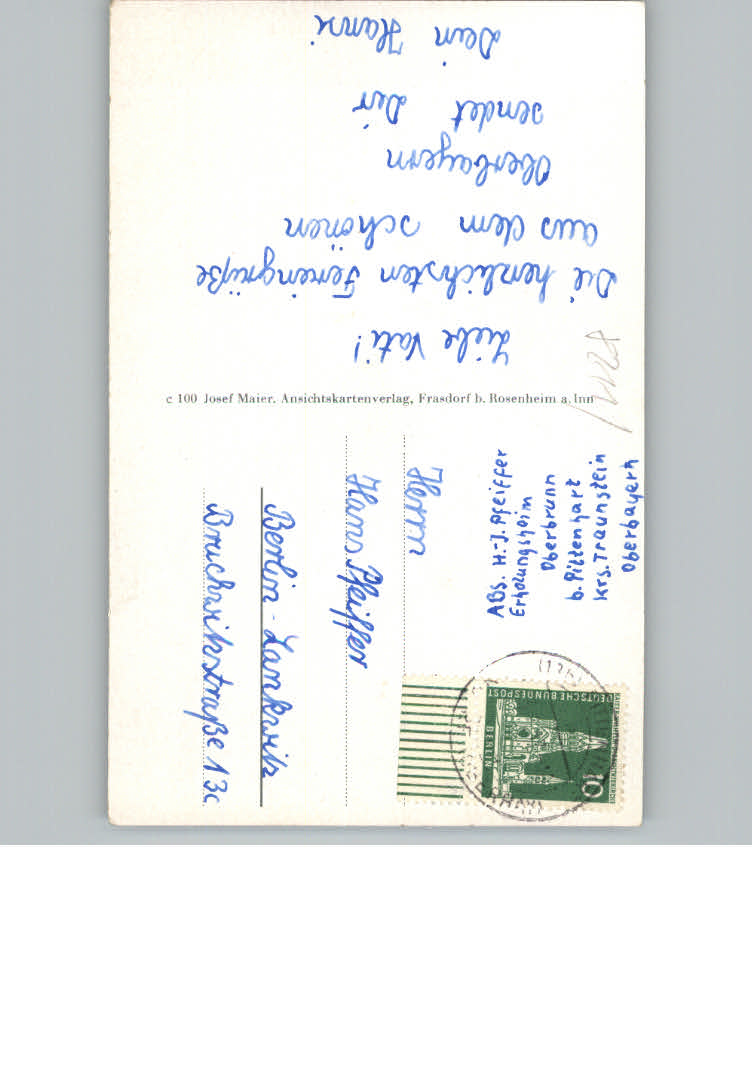 Liebe Vati!
Die herzlichsten Feriengrüße
aus dem schönen
Oberbayern
sendet Dir
Dein Hansi
c 100 Josef Maier. Ansichtskartenverlag, Frasdorf b. Rosenheim a. Inn
ABS. H.-J. Pfeiffer
Erholungsheim
Oberbrunn
b. Pittenhart
Krs. Traunstein
Oberbayern
Herrn
Hans Pfeiffer
Berlin-Lankwitz
Bruchwitzstraße 13c
DEUTSCHE BUNDESPOST
BERLIN
10